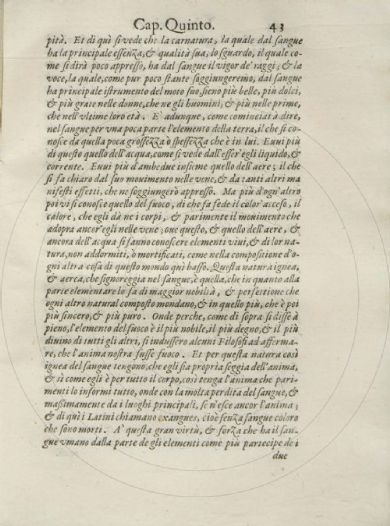 Cap. Quinto. 43
pità. Et di quì si vede che la carnatura, la quale dal sangue
ha la principale essenza, & qualità sua, lo sguardo, il quale co-
me si dirà poco appresso, ha dal sangue il vigor de' raggi; & la
voce, la quale, come pur poco stante soggiungeremo, dal sangue
ha principale istrumento del moto suo, sieno più belle, più dolci,
& più grate nelle donne, che ne gli huomini; & più nelle prime,
che nell'vltime loro età. E' adunque, come cominciai à dire,
nel sangue per vna poca parte l'elemento della terra, il che si co-
nosce da quella poca grossezza ò spessezza che è in lui. Euui più
di questo quello dell'acqua, come si vede dall'esser egli liquido, &
corrente. Euui più d'ambedue insieme quello dell'aere; il che
si fa chiaro dal suo mouimento nelle vene, & da tanti altri ma
nifesti effetti, che ne soggiungerò appresso. Ma più d'ogn'altro
poi vi si conosce quello del fuoco, di che fa fede il color'acceso, il
calore, che egli dà ne i corpi, & parimente il mouimento che
adopra ancor'egli nelle vene; oue questo, & quello dell'aere, &
ancora dell'acqua si fanno conoscere elementi viui, & di lor na-
tura, non addormiti, ò mortificati, come nella compositione d'o-
gni altra cosa di questo mondo quì basso. Questa natura ignea,
& aerea, che signoreggia nel sangue, è quella, che in quanto alla
parte elementare lo fa di maggior nobiltà, & perfettione che
ogni altro natural composto mondano, & in quello più, che è poi
più sincero, & più puro. Onde perche, come di sopra si disse à
pieno, l'elemento del fuoco è il più nobile, il più degno, & il più
diuino di tutti gli altri, si indussero alcuni Filosofi ad afferma-
re, che l'anima nostra fusse fuoco. Et per questa natura così
ignea del sangue tengono, che egli sia propria seggia dell'anima,
& sì come egli è per tutto il corpo, così tenga l'anima che pari-
menti lo informi tutto, onde con la molta perdita del sangue, &
massimamente da i luoghi principali, se n'esce ancor l'anima;
& di quì i Latini chiamano exangues, cioè senza sangue coloro
che sono morti. A' questa gran virtù, & forza che ha il san-
gue vmano dalla parte de gli elementi come più partecipe de i
due